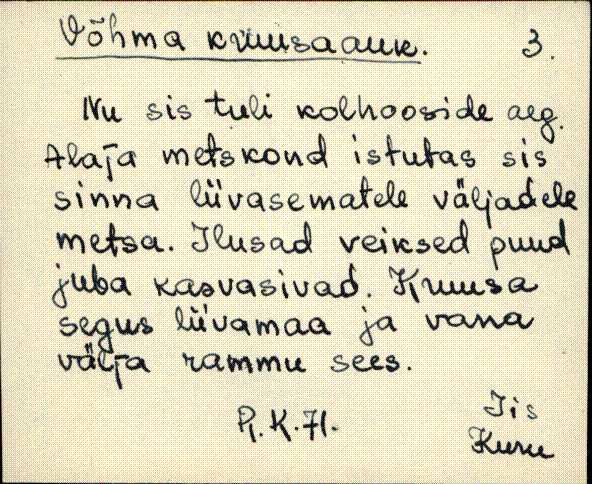 Võhma kruusaauk. 3.
Nu sis tuli kolhooside aeg.
Alaja metskond istutas sis
sinna liivasematele väljadele
metsa. Ilusad veiksed puud
juba kasvasivad. Kruusa
segus liivamaa ja vana
välja rammu sees.
R. K. 71. Iis
Kuru